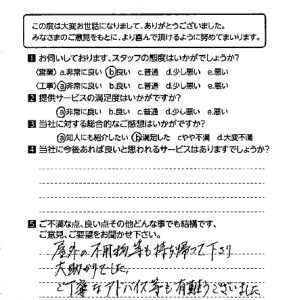 この度は大変お世話になりまして、ありがとうございました。
みなさまのご意見をもとに、より喜んで頂けるように努めてまいります。
1 お伺いしております、スタッフの態度はいかがでしょうか?
(営業) a.非常に良い b.良い c.普通 d.少し悪い e.悪い
(工事) a.非常に良い b.良い c.普通 d.少し悪い e.悪い
2 提供サービスの満足度はいかがですか?
a.非常に良い b.良い c.普通 d.少し悪い e.悪い
3 当社に対する総合的なご感想はいかがですか?
a.知人にも紹介したい b.満足した c.やや不満 d.大変不満
4 当社に今後あれば良いと思われるサービスはありますでしょうか?
5 ご不満な点、良い点その他どんな事でも結構です、
ご意見、ご要望をお聞かせ下さい。
屋外の不用物等も持ち帰って下さり
大助かりでした。
ご丁寧なアドバイス等も有難うございました